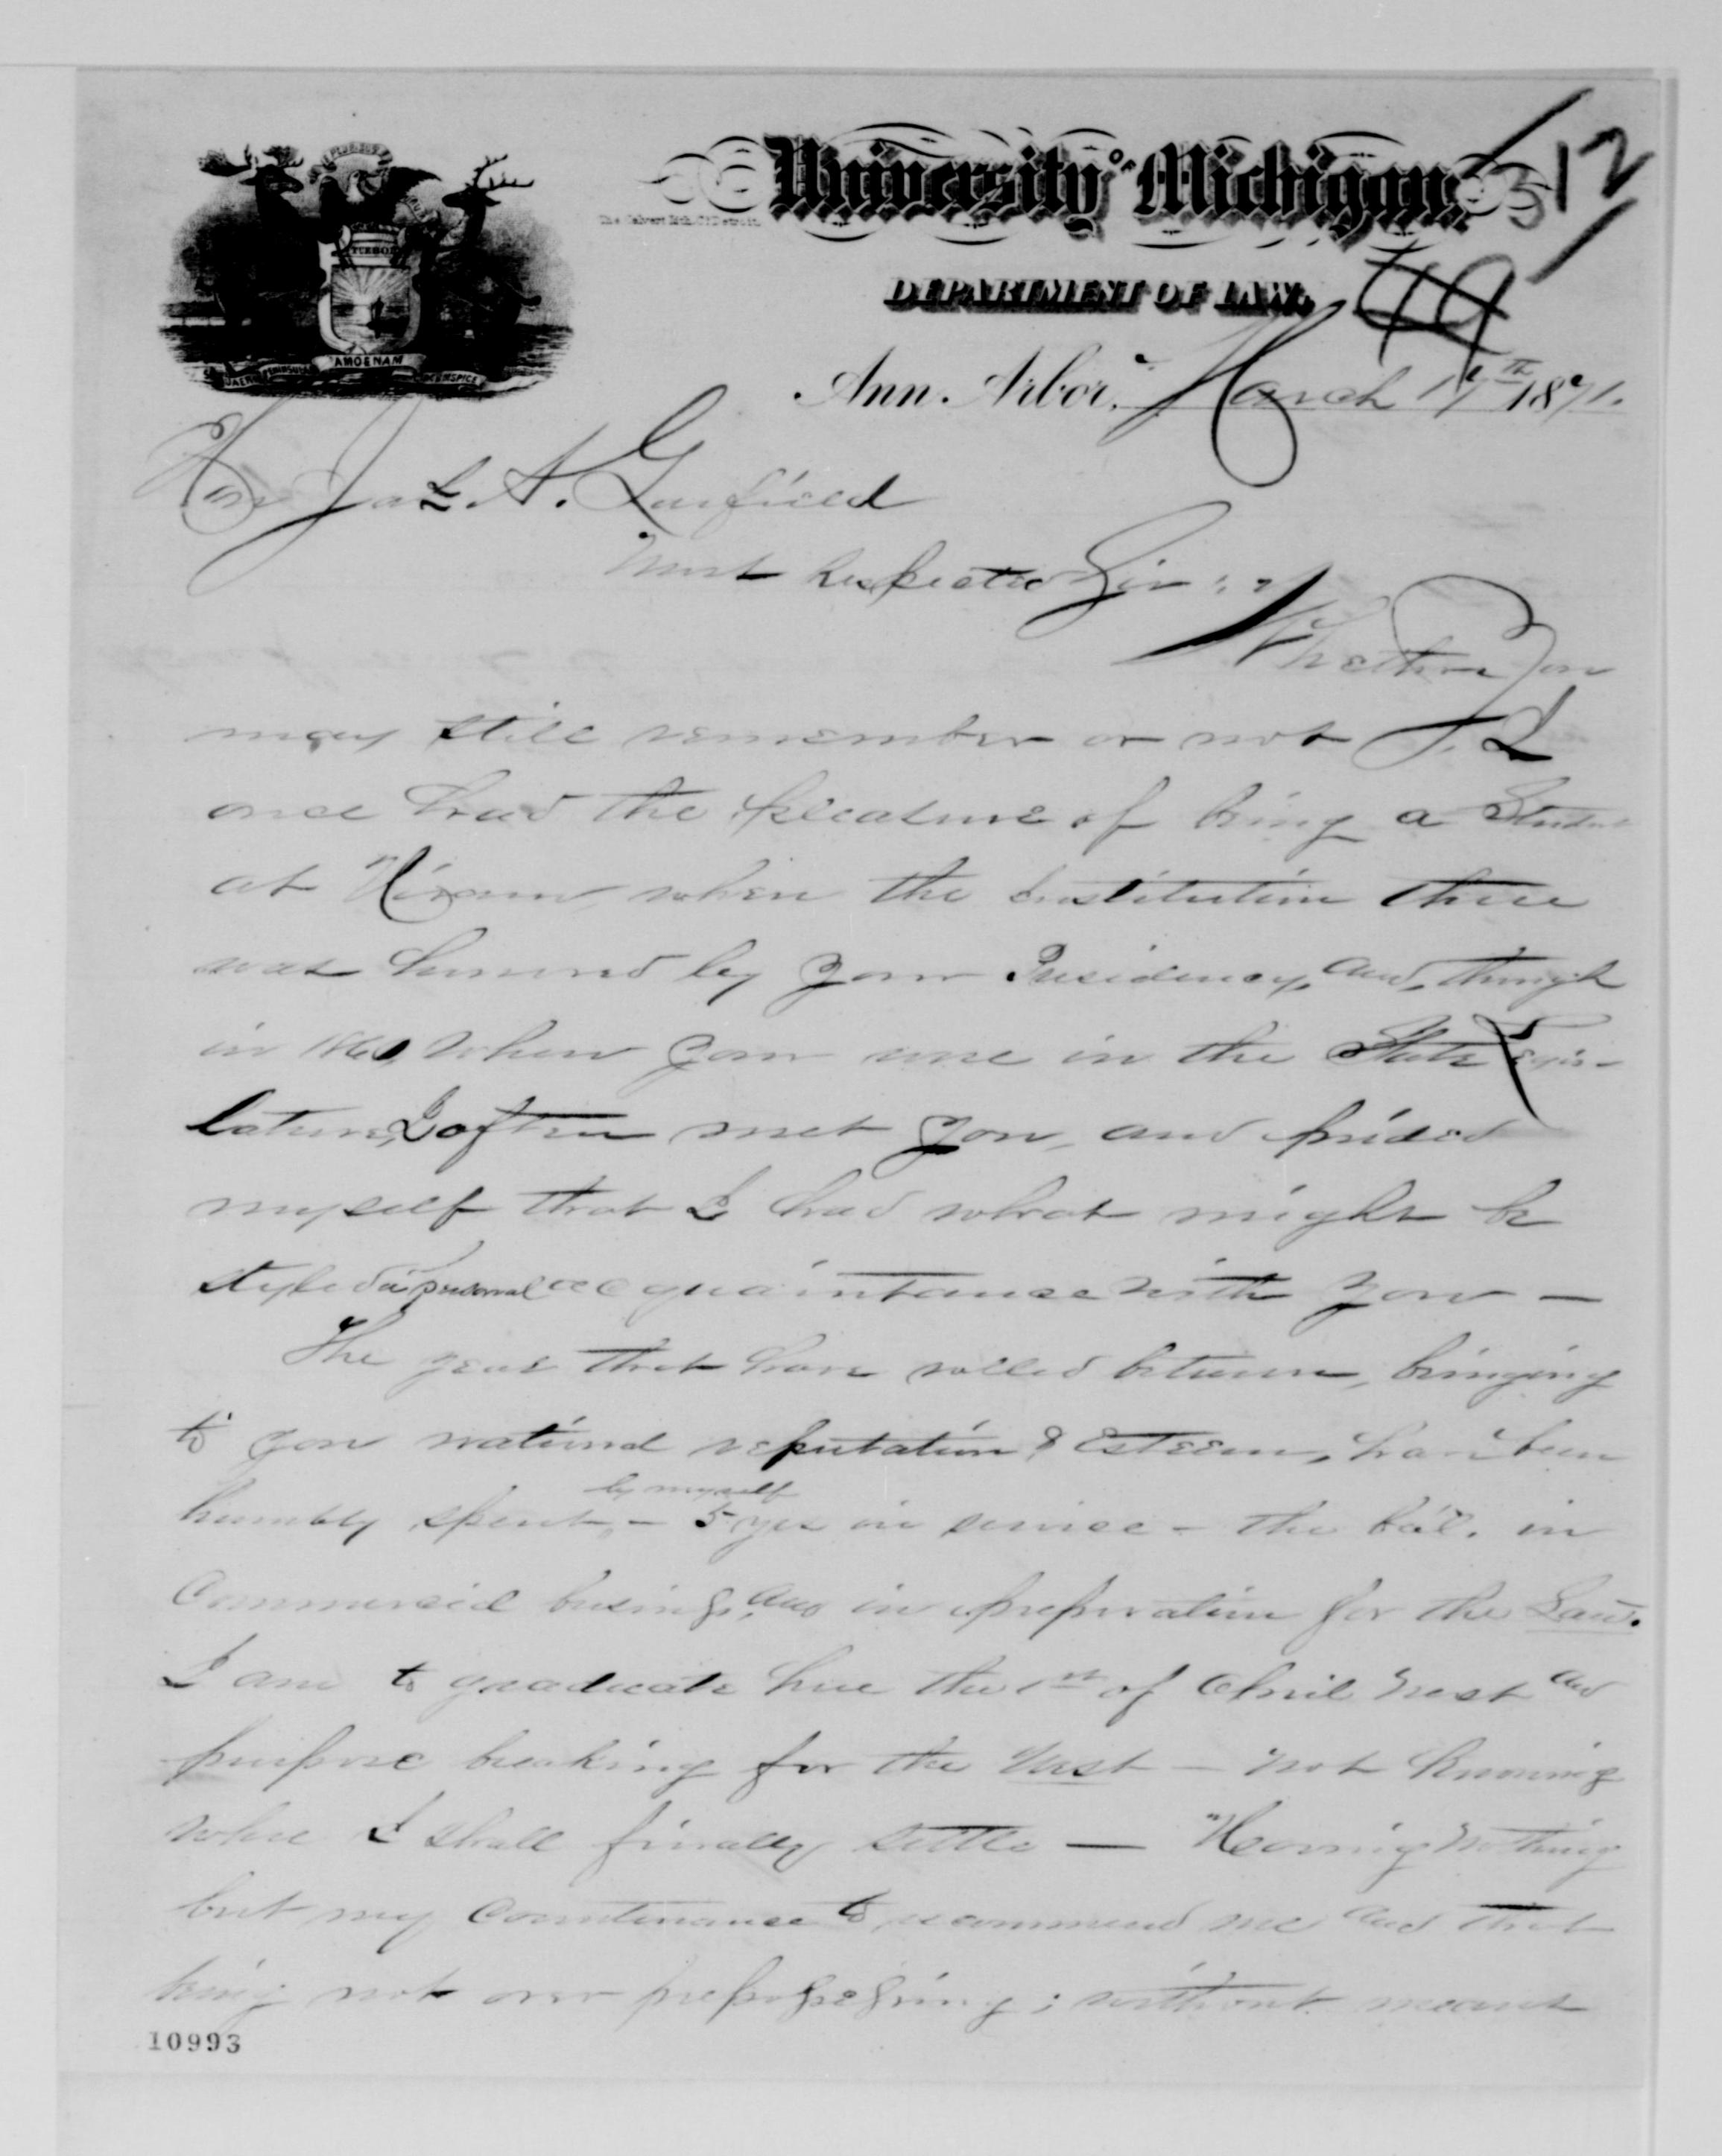 University of Michigan.
The Calvert Lith. Co. Detroit.
312
DEPARTMENT OF LAW.
49
TUEBOR
AMOENAM
Ann Arbor, March 17th 1871.
Hon Jas. A. Garfield
Most Respected Sir:
Whether you
may still remember or not, I
once had the pleasure of being a Student
at Hiram, when the Institution there
was honored by your Presidency, and, though
in 1860 when you were in the State Legis-
lature, I often met you, and prided
myself that I had what might be
styled a personal acquaintance with you —
The years that have rolled between, bringing
to you national reputation & esteem, have been
humbly spent, by myself – 5 yrs in service – the bal. in
Commercial business, and in preparation for the Law.
I am to graduate here the 1st of April next and
purpose breaking for the West – not knowing
where I shall finally settle — Having nothing
but my Countenance to recommend me and that
being not over prepossessing; without means
10993